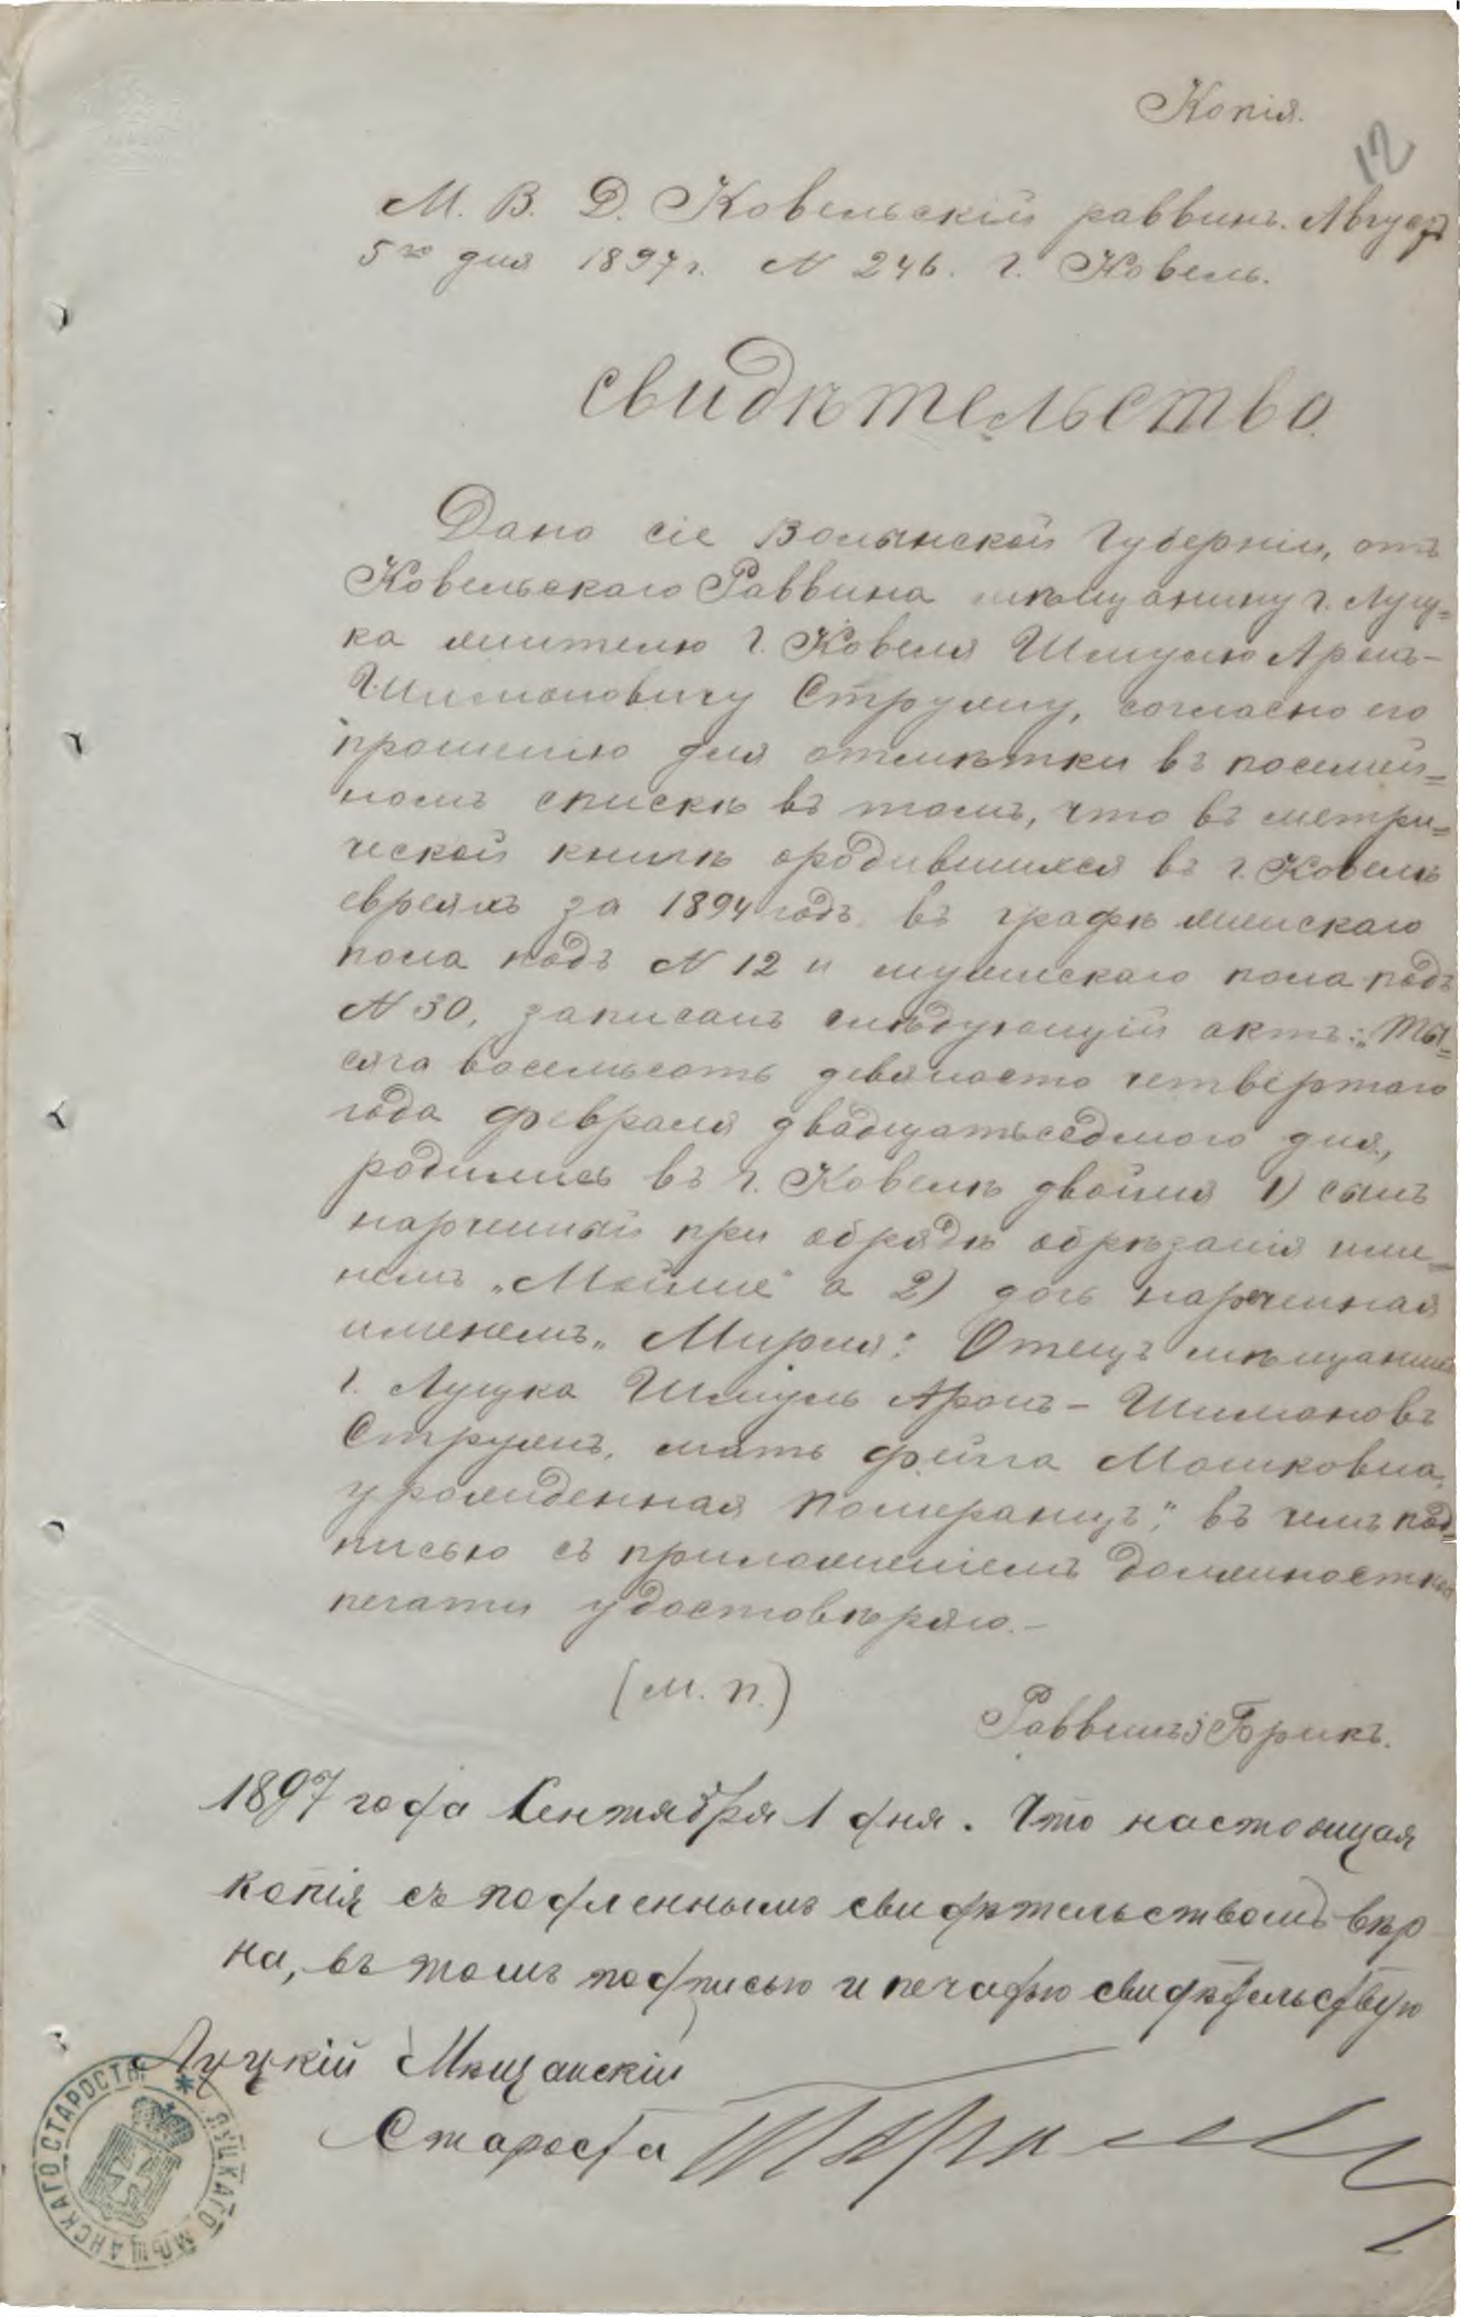 Копія.
12
М. В. Д. Ковельскій раввинъ. Августа
5го дня 1897 г. N 246. г. Ковель.
Свидѣтельство.
Дано сіе Волынской Губерніи, отъ
Ковельскаго Раввина мѣщанину г. Луц=
ка жителю г. Ковеля Шмулю Аронъ-
Шимоновичу Струлиу, согласно его
прошенію для отмѣтки въ посемей=
номъ спискѣ въ томъ, что въ метри=
ческой книгѣ ородившихся въ г. Ковелѣ
евреяхъ за 1894 годъ въ графѣ женскаго
пола подъ N 12 и мужескаго пола подъ
N 30, записанъ слѣдующій актъ: „Ты=
сяча восемьсотъ девяносто четвертаго
года февраля двадцатьседмого дня,
родились въ г. Ковелѣ двойня 1) сынъ
нареченный при обрядѣ обрѣзанія име=
немъ „Мойше" а 2) дочь нареченная
именемъ „Мирля". Отецъ мѣщанинъ
г. Луцка Шмуль Аронъ-Шимоновъ
мать Фейга Мошковна,
урожденная Померанцъ", въ чемъ под=
писью съ приложеніемъ должностной
печати удостовѣряю.-
(м. п.)
Раввинъ Брикъ.
1897 года Сентября 1 дня. Что настоящая
копія съ подленнымъ свидѣтельствомъ вѣр
на, въ томъ подписью и печатью свидѣтельствую
Луцкій Мѣщанскій
Староста
ЛУЦКАГО МѢЩАНСКАГО СТАРОСТЫ